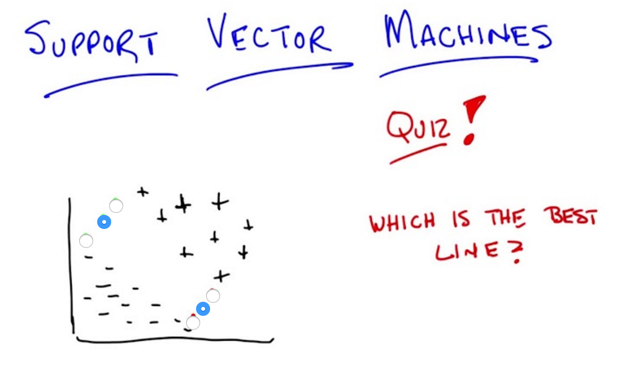 SUPPORT VECTOR MACHINES
QUIZ!
WHICH IS THE BEST
LINE?